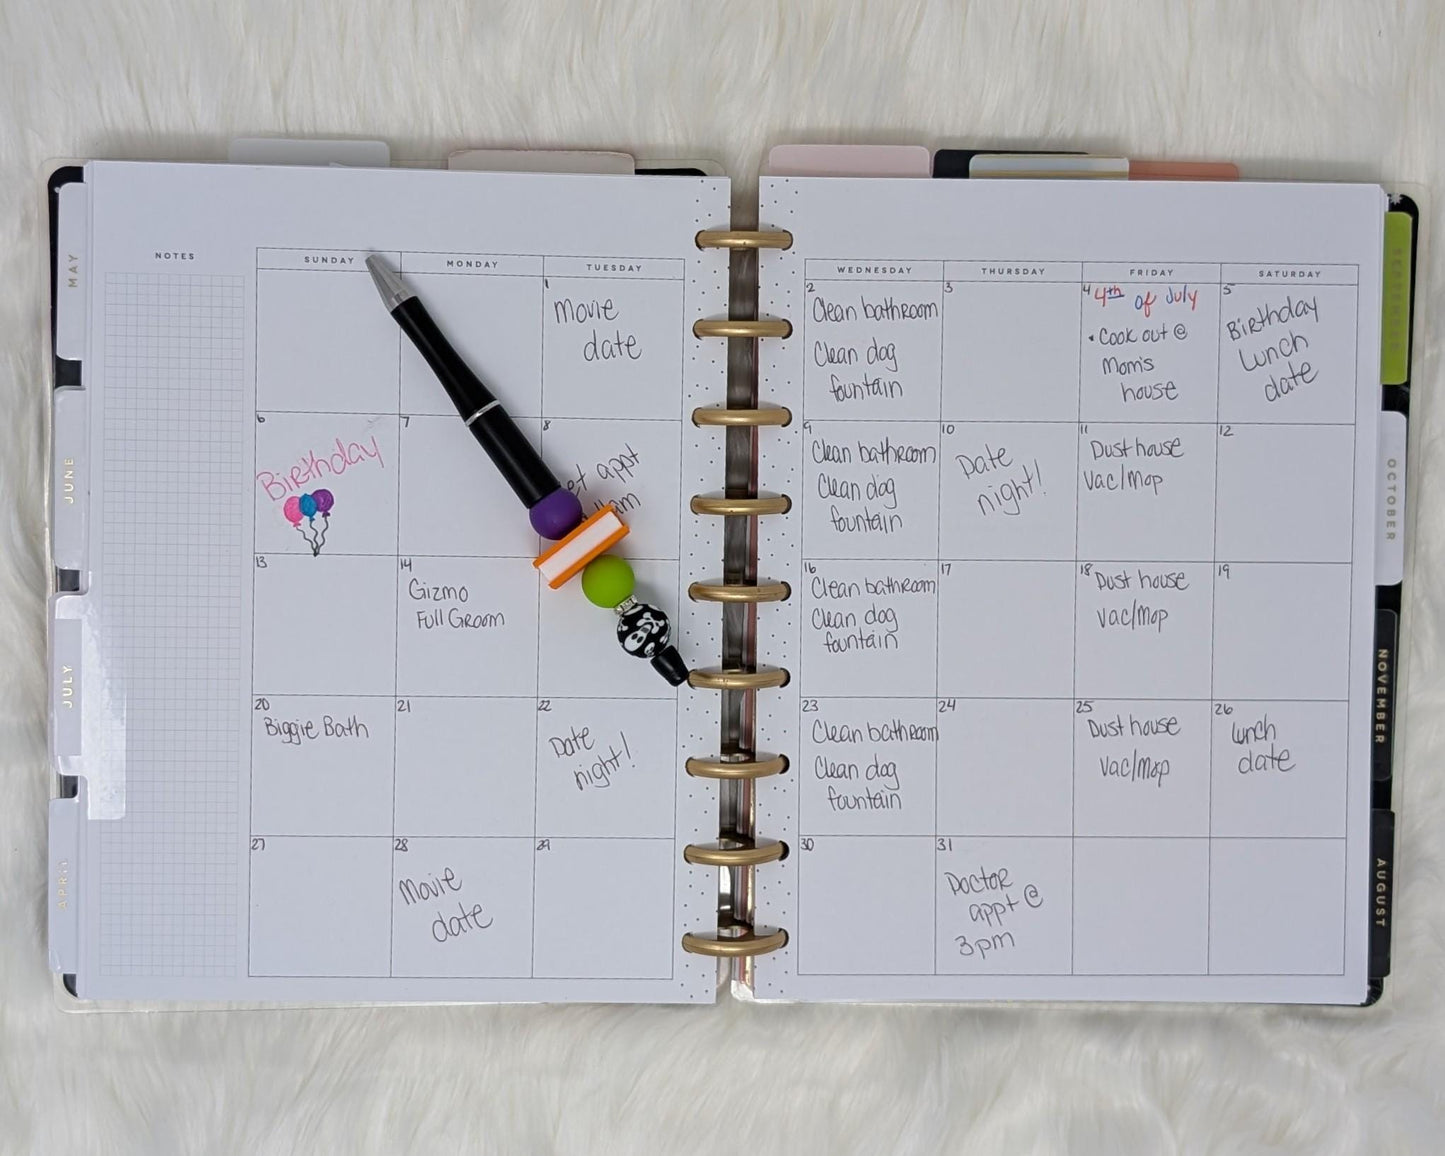 NOTES
SUNDAY
MONDAY
TUESDAY
WEDNESDAY
THURSDAY
FRIDAY
SATURDAY
1
Movie
date
2
Clean bathroom
Clean dog
fountain
3
4
4th of July
• Cook out @
Mom's
house
5
Birthday
Lunch
date
6
Birthday
7
8
appt
9
Clean bathroom
Clean dog
fountain
10
Date
night!
11
Dust house
Vac/Mop
12
13
14
Gizmo
Full Groom
16
Clean bathroom
Clean dog
fountain
17
18
Dust house
Vac/Mop
19
20
Biggie Bath
21
22
Date
night!
23
Clean bathroom
Clean dog
fountain
24
25
Dust house
Vac/Mop
26
Lunch
date
27
28
Movie
date
29
30
31
Doctor
appt @
3pm
MAY
JUNE
JULY
APRIL
SEPTEMBER
OCTOBER
NOVEMBER
AUGUST